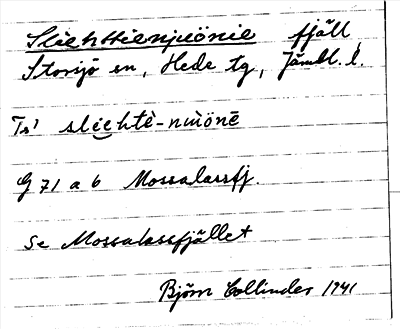 Sliehttienjuönie fjäll
Storsjö sn, Hede tg, Jämtl. l.
Ts' sliehtè-nùönē
G 71 a b Mossalassfj.
Se Mossalassfjället
Björn Collinder 1941